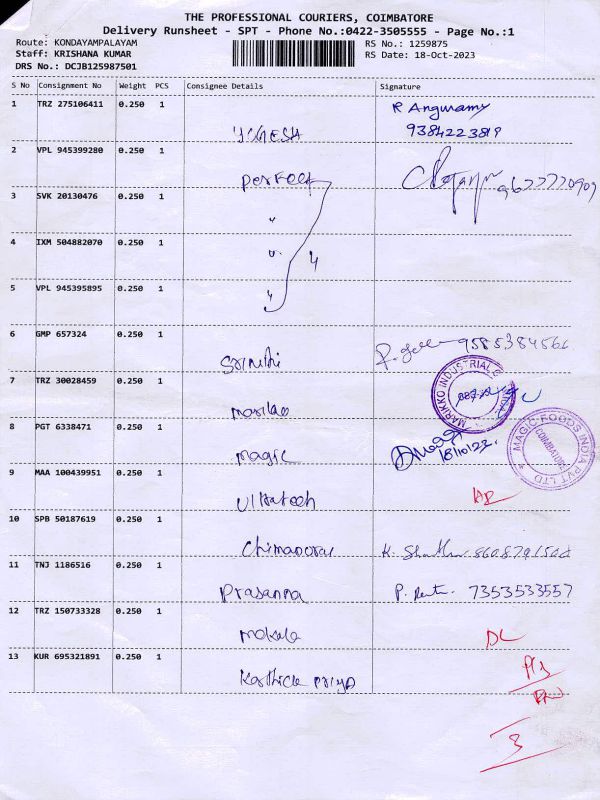 THE PROFESSIONAL COURIERS, COIMBATORE
Delivery Runsheet - SPT - Phone No.:0422-3505555 - Page No.:1
Route: KONDAYAMPALAYAM
Staff: KRISHANA KUMAR
DRS No.: DCJB125987501
RS No.: 1259875
RS Date: 18-Oct-2023
S No Consignment No Weight PCS Consignee Details Signature
1 TRZ 275106411 0.250 1
9384223819
2 VPL 945399280 0.250 1
Perfect
3 SVK 20130476 0.250 1
"
4 IXM 504882070 0.250 1
" 4
5 VPL 945395895 0.250 1
"
6 GMP 657324 0.250 1
Srinithi
7 TRZ 30028459 0.250 1
MARIKKO INDUSTRIAL
8 PGT 6338471 0.250 1
magic 18/10/23
MAGIC FOODS INDIA PVT LTD
COIMBATORE
9 MAA 100439951 0.250 1
10 SPB 50187619 0.250 1
11 TNJ 1186516 0.250 1
Prasanna 7353533557
12 TRZ 150733328 0.250 1
DL
13 KUR 695321891 0.250 1
Karthick Priya
3